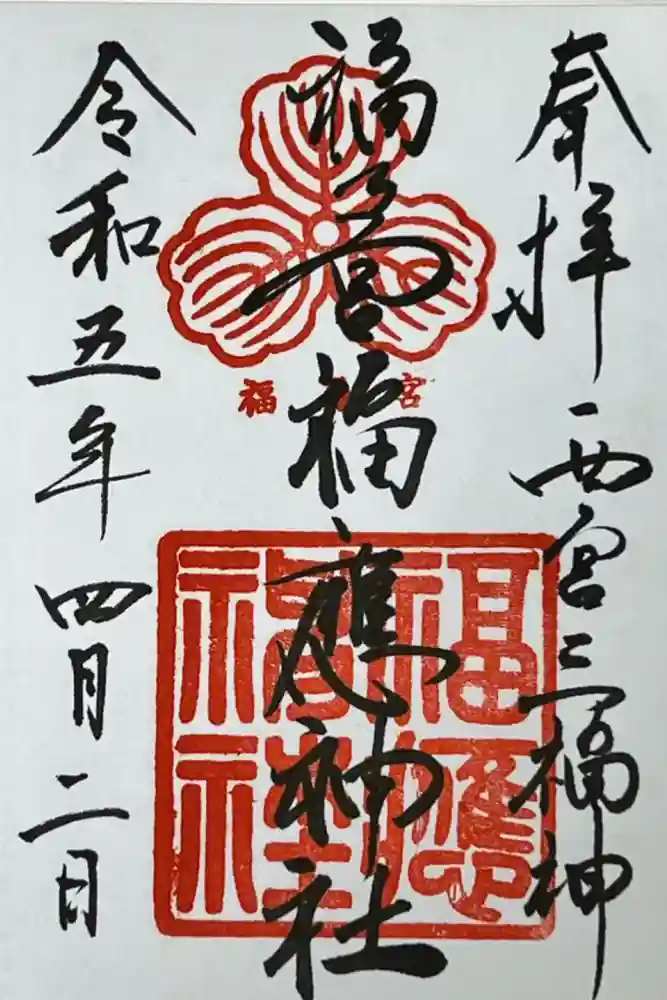 奉拝 西宮三福神
福宮福應神社
令和五年四月二日
福 宮
福應神社